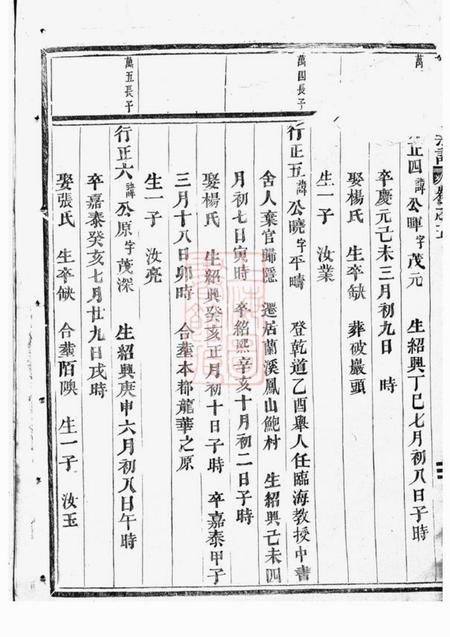 萬
行正四諱公暉字茂元　生紹興丁巳七月初八日子時
卒慶元己未三月初九日　時
娶楊氏　生卒缺　葬破巖頭
生一子　汝業
萬四長子
行正五諱公曉字平疇　登乾道乙酉舉人任臨海教授中書
舍人棄官歸隱　遷居蘭溪鳳山鮑村　生紹興己未四
月初七日寅時　卒紹熙辛亥十月初二日子時
娶楊氏　生紹興癸亥正月初十日子時　卒嘉泰甲子
三月十八日卯時　合葬本都龍華之原
生一子　汝亮
萬五長子
行正六諱公原字茂深　生紹興庚申六月初八日午時
卒嘉泰癸亥七月廿九日戌時
娶張氏　生卒缺　合葬陌隩　生一子　汝玉